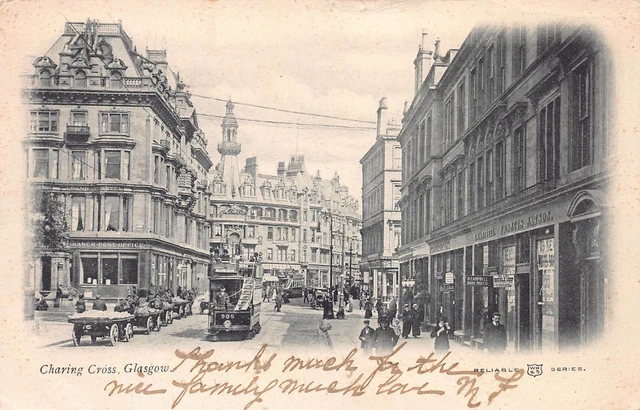 BRANCH POST OFFICE
905
CAMPBELL
Charing Cross, Glasgow.
RELIABLE WR&S SERIES.
Thanks much for the
nice family much love M.F.